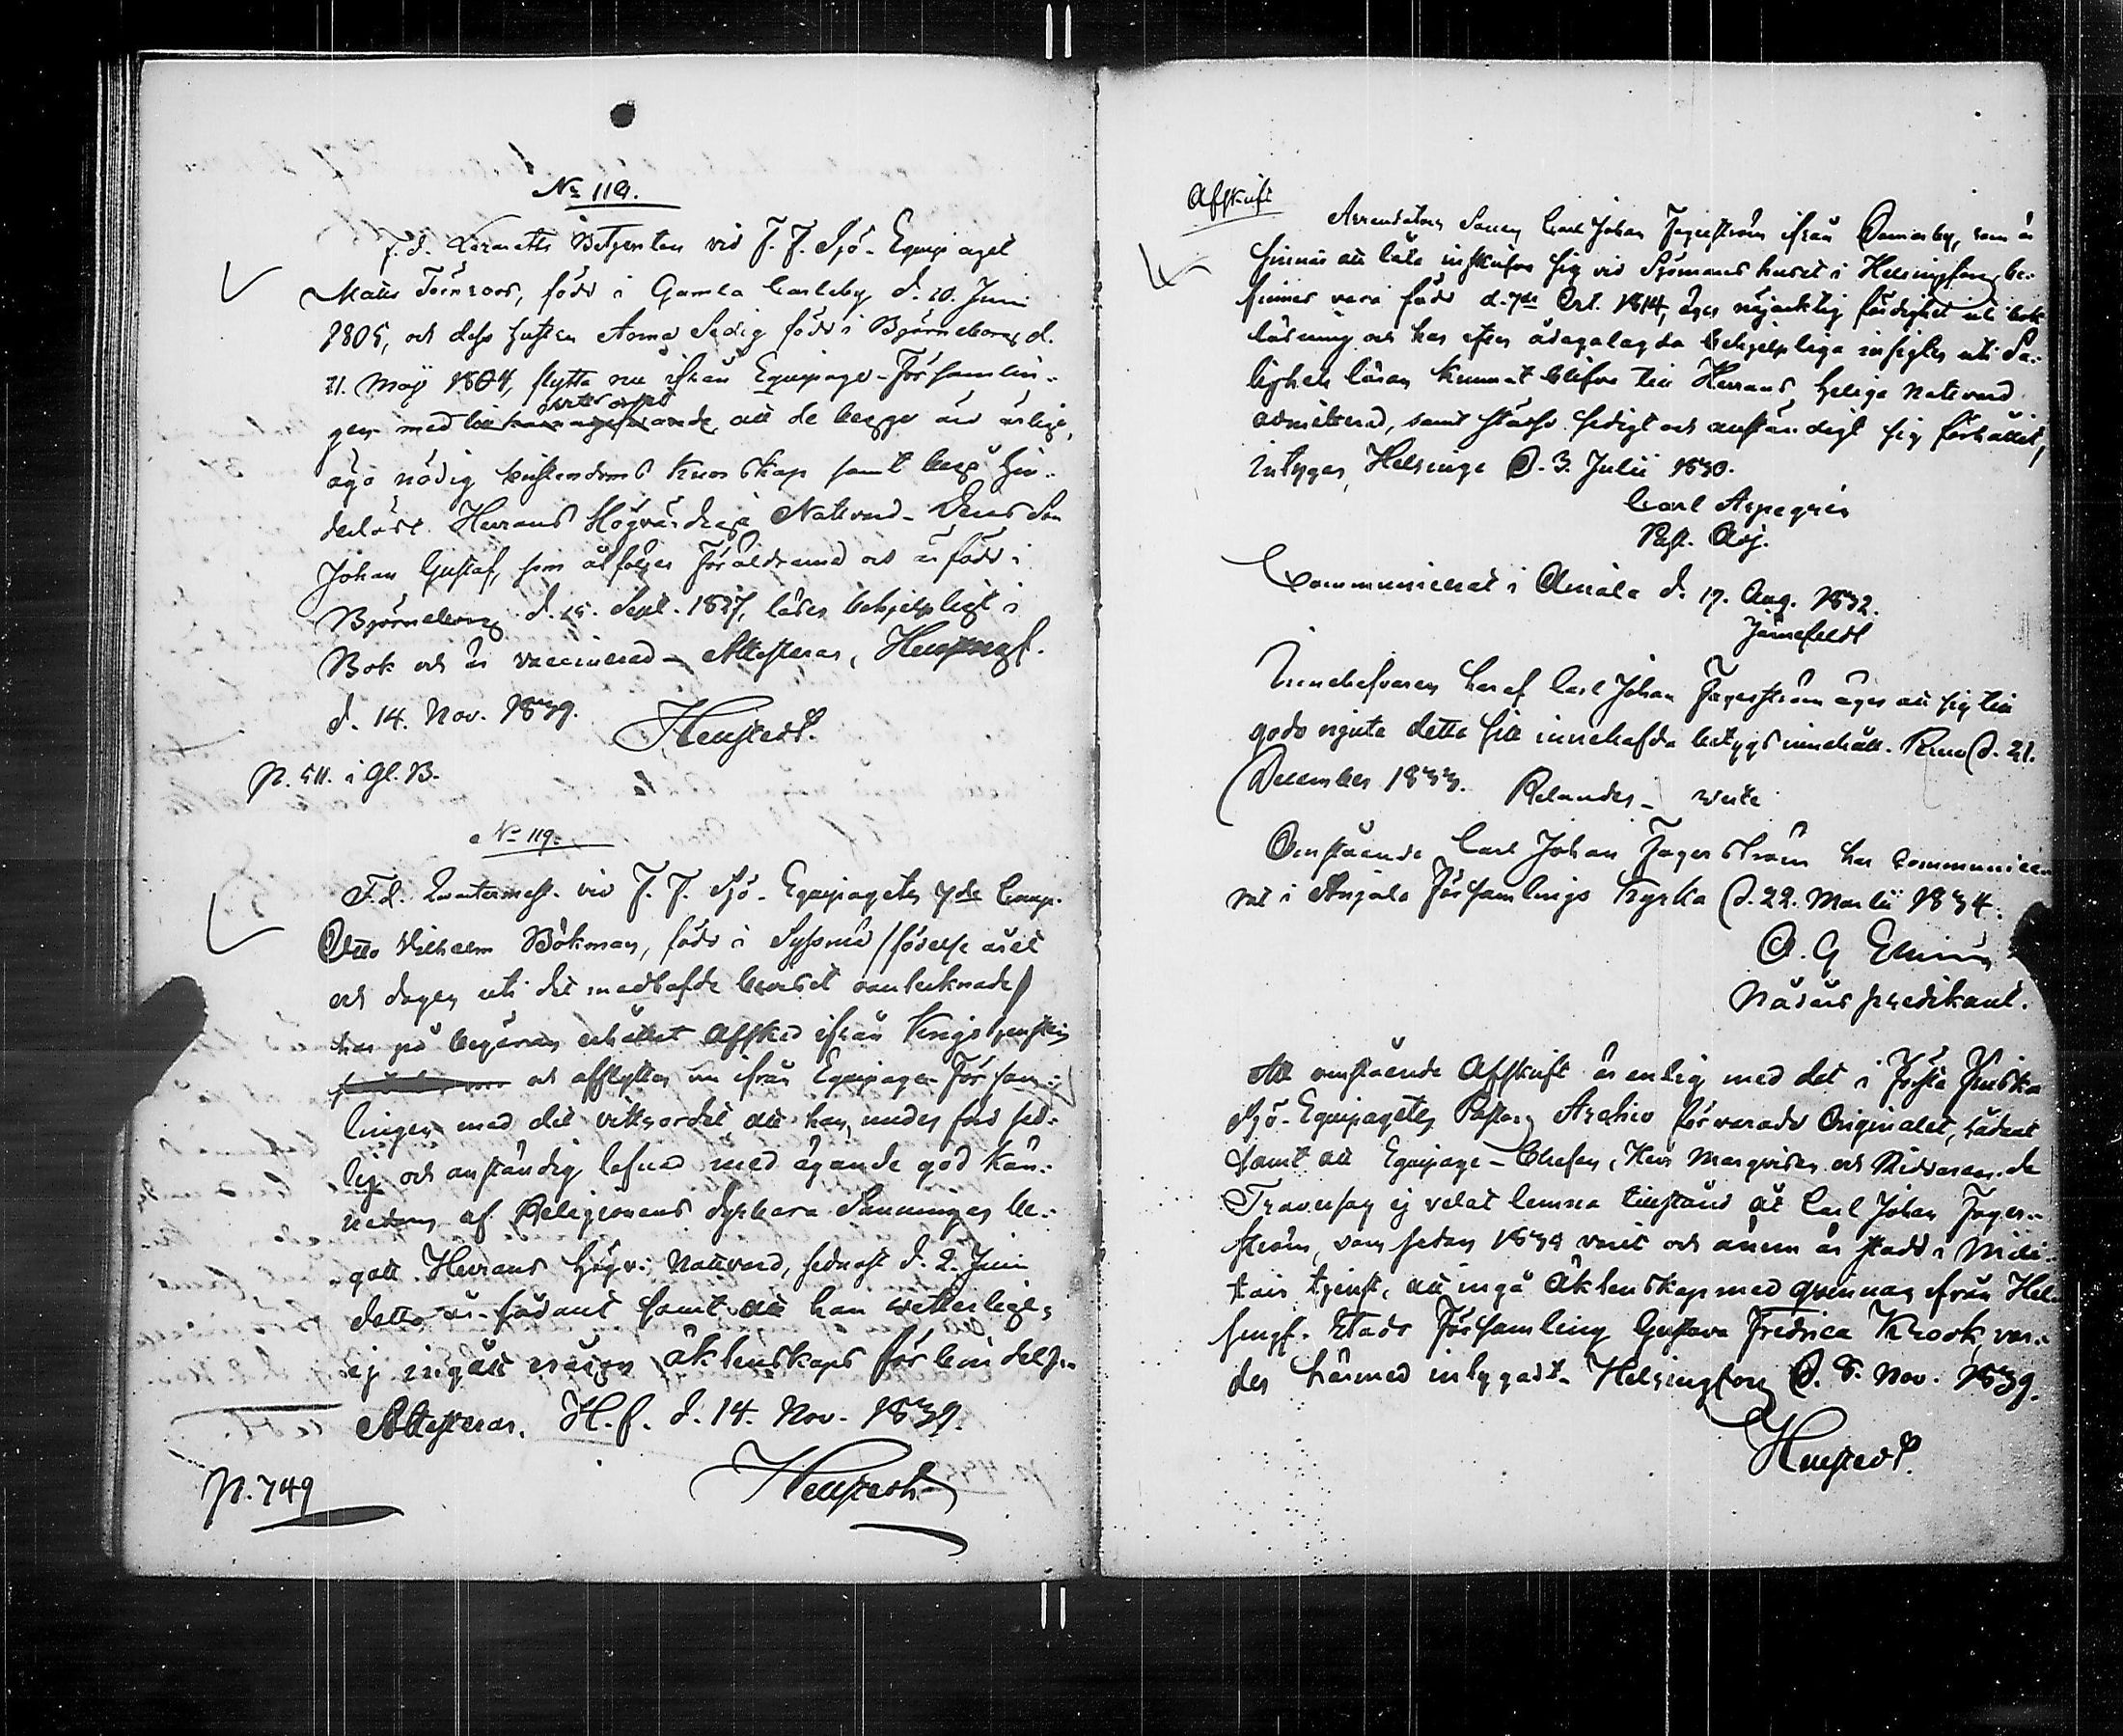 No 119.
F. d. Lazaretts Betjenten vid F. F. Sjö-Equipaget
Matts Törnroos, född i Gamla Carleby d. 20. Juni
1805, och dess hustru Anna Sedig född i Björneborg d.
21. Maji 1804, flytta nu ifrån Equipage-Församlin-
gen med att de begge äro ärlige,
äga nödig kristendoms kunskap samt begå hin-
derlöst Herrans Högvärdiga Nattvard. Deras Son
Johan Gustaf, som åtföljer Föräldrarna och är född i
Björneborg d. 15. Sept. 1827, läser behjelpligt i
Bok och är vaccinerad. Attesteras, Helsingf.
d. 14. Nov. 1839.
p. 511. i Gl. B.
No 119.
F. d. Quartermest. vid F. F. Sjö-Equipagets 7de Comp.
Otto Vilhelm Bökman, född i Sysmä /födelse året
och dagen uti det medhafde beviset oantecknade/
har på begäran erhållit Afsked ifrån Krigstjensten
och afflyttar nu ifrån Equipage-Försam-
lingen med det vittsordet att han, under förd sed-
lig och anständig lefnad med ägande god Kän-
nedom af Religionens dyrbara Sanningar be-
gått Herrans Högv. Nattvard, sednast d. 2. Juni
detta år, sådant samt att han vetterligen
ej ingått någon äktenskaps förbindelse
Attesteras. H.f. d. 14. Nov. 1839.
p. 749
Afskrift
Arrendators Sonen Carl Johan Fagerström ifrån Domarby, som är
sinnad att låta inskrifva sig vid Sjömanshuset i Helsingfors, be-
finnes vara född d. 7de Oct. 1814, äger nöjaktig färdighet uti bok
läsning och har efter ådagalagda behjelpliga insigter uti Sa-
lighets läran kunnat blifva till Herrans Heliga Nattvard
admitterad, samt städse sedigt och anständigt sig förhållit,
intygar, Helsinge d. 3. Julii 1830.
Carl Arpegrén
Past. Adj.
Communicerat i Anjala d. 17. Aug. 1832.
Järnefeldt
Innehafvaren häraf Carl Johan Fagerström äger att sig till
godo njuta detta sitt innehafda betygs innehåll. d. 21.
December 1833. Relander
Omstående Carl Johan Fagerström har communice-
rat i Anjala Församlings Kyrka d. 22. Martii 1834.
Nådårs predikant.
Att omstående Afskrift är enlig med det i Första Finska
Sjö-Equipagets Pastors Archiv förvarade Originalet, sådant
samt att Equipage-Chefen, Herr Marquisen och Riddaren de
Traversay ej velat lemna tillstånd åt Carl Johan Fager-
ström, som sedan 1834 varit och ännu är stadd i Mili-
tair tjenst, att ingå Äktenskap med qvinnan ifrån Hel-
singf. Stads Församling Gustava Fredrica Krook, var-
der härmed intygadt. Helsingfors d. 8. Nov. 1839.